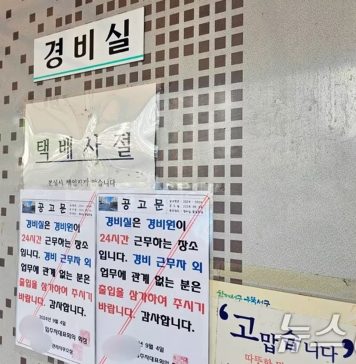 경비실
택배사절
분실시 책임지지 않습니다
공고문
경비실은 경비원이
24시간 근무하는 장소
입니다. 경비 근무자 외
업무에 관계 없는 분은
출입을 삼가하여 주시기
바랍니다. 감사합니다.
9월 4일
입주자대표회의 회장
공고문
경비실은 경비원이
24시간 근무하는 장소
입니다. 경비 근무자 외
업무에 관계 없는 분은
출입을 삼가하여 주시기
바랍니다. 감사합니다.
9월 4일
입주자대표회의
"고맙습니다"
뉴스